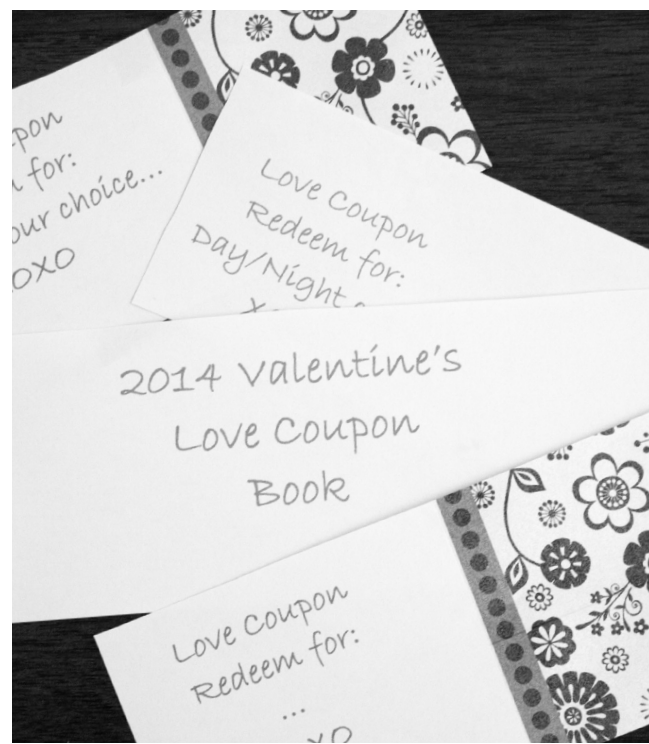 pon
for:
our choice...
OXO
Love Coupon
Redeem for:
Day/Night
2014 Valentine's
Love Coupon
Book
Love Coupon
Redeem for:
...
XO